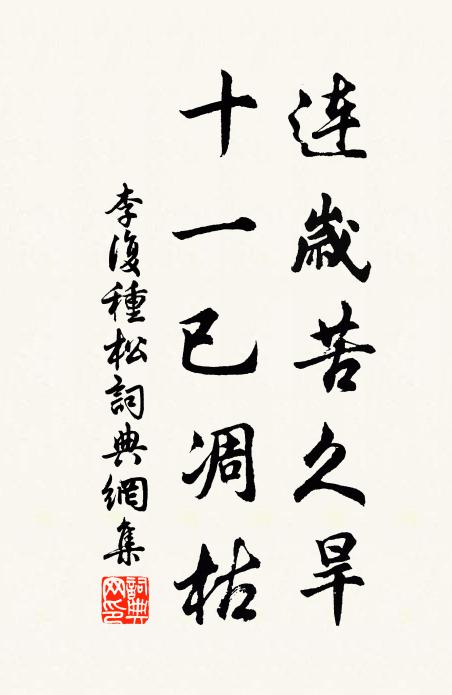 连歲苦久旱
十一已凋枯
李復種松詞典網集
詞典网印